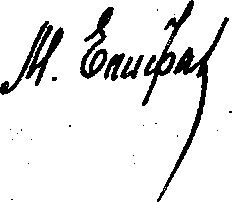 М. Епифан